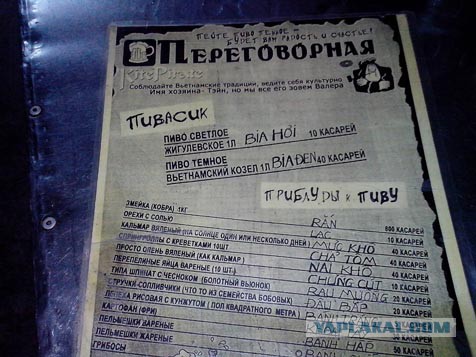 ПЕЙТЕ ПИВО ПЕННОЕ -
БУДЕТ ВАМ РАДОСТЬ И СЧАСТЬЕ!
ПЕРЕГОВОРНАЯ
KitePirate
Соблюдайте Вьетнамские традиции, ведите себя культурно
Имя хозяина- Тэйн, но мы все его зовем Валера
ПИВАСИК
ПИВО СВЕТЛОЕ
ЖИГУЛЕВСКОЕ 1Л BIA HƠI 10 КАСАРЕЙ
ПИВО ТЕМНОЕ
ВЬЕТНАМСКИЙ КОЗЕЛ 1Л BIA ĐEN 40 КАСАРЕЙ
ПРИБЛУДЫ К ПИВУ
ЗМЕЙКА (КОБРА) 1КГ RẮN 800 КАСАРЕЙ
ОРЕХИ С СОЛЬЮ LẠC 10 КАСАРЕЙ
КАЛЬМАР ВЯЛЕНЫЙ (НА СОЛНЦЕ ОДИН ИЛИ НЕСКОЛЬКО ДНЕЙ) MỰC KHÔ 40 КАСАРЕЙ
СПРИНГ РОЛЛЫ С КРЕВЕТКАМИ 10ШТ CHẢ TÔM 40 КАСАРЕЙ
ПРОСТО ОЛЕНЬ ВЯЛЕНЫЙ (КАК КАЛЬМАР) NAI KHÔ 40 КАСАРЕЙ
ПЕРЕПЕЛИНЫЕ ЯЙЦА ВАРЕНЫЕ (10 ШТ.) CHỨNG CÚT 10 КАСАРЕЙ
ТИПА ШПИНАТ С ЧЕСНОКОМ (БОЛОТНЫЙ ВЬЮНОК) RAU MUỐNG 20 КАСАРЕЙ
СТРУЧКИ-СОПЛИВЧИКИ (ЧТО ТО ИЗ СЕМЕЙСТВА БОБОВЫХ) ĐẬU BẮP 20 КАСАРЕЙ
РИСОВАЯ С КУНЖУТОМ (ПОЛ КВАДРАТНОГО МЕТРА)
КАРТОФАН (ФРИ)
ПЕЛЬМЕШКИ ЖАРЕНЫЕ
ПЕЛЬМЕШКИ ЖАРЕНЫЕ BÁNH HẤP КАСАРЕЙ
ГРИБОСЫ 50 КАСАРЕЙ
YAPLAKAL.COM